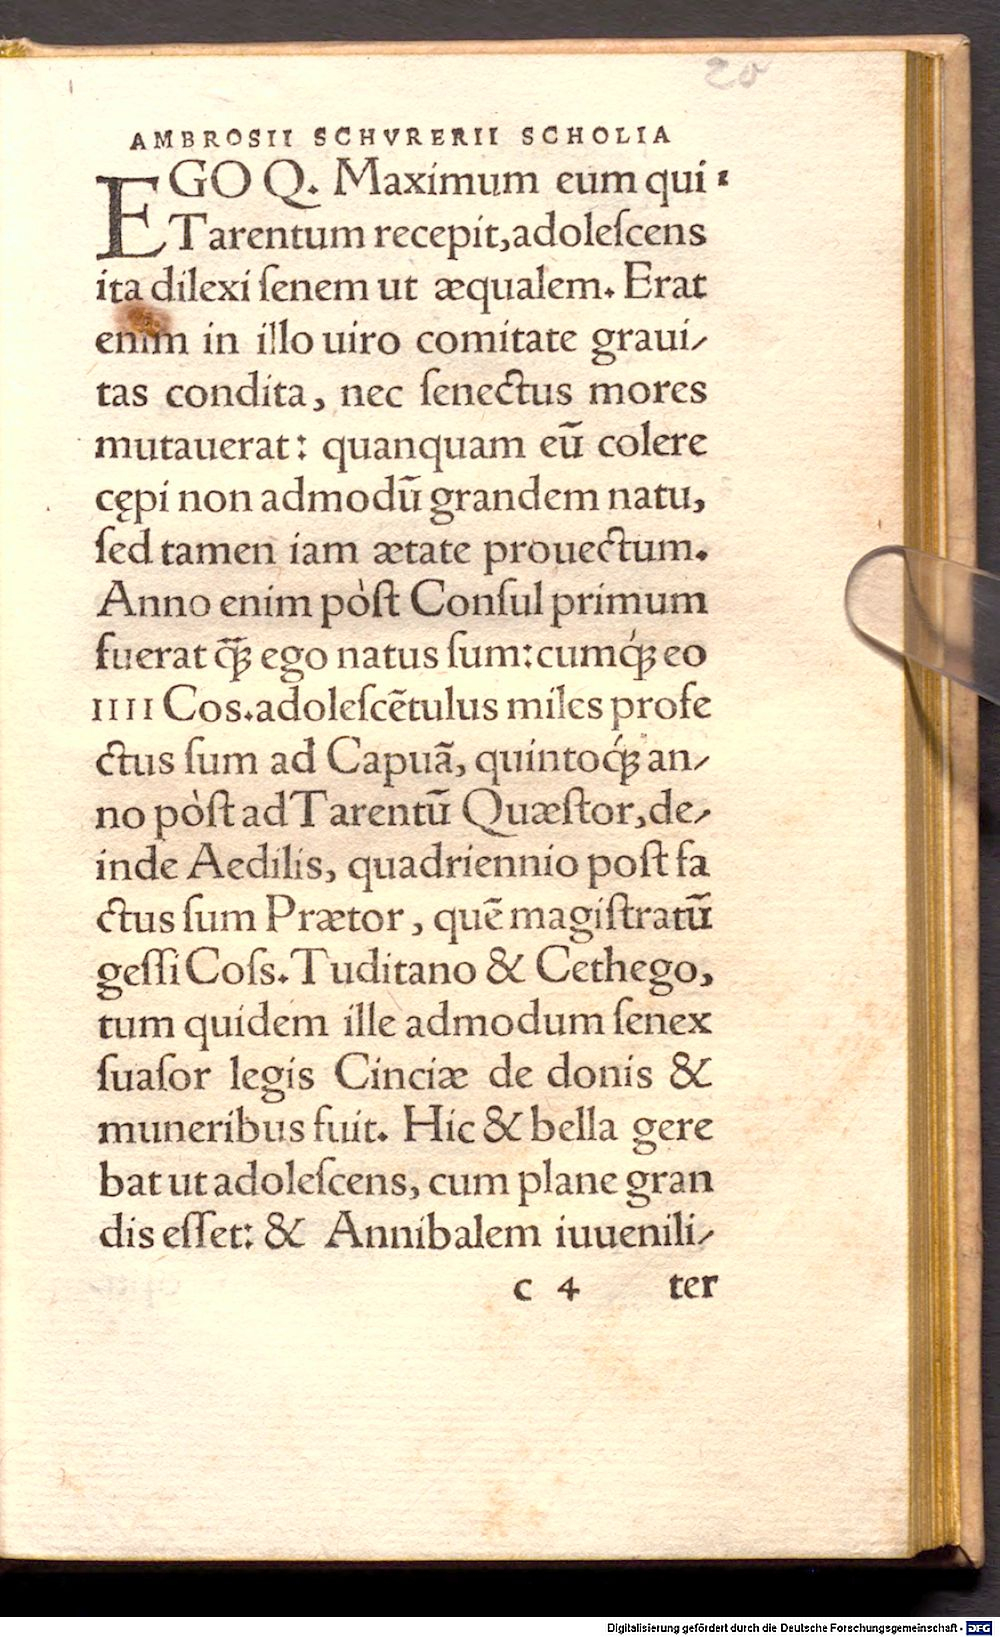 20
AMBROSII SCHVRERII SCHOLIA
EGO Q. Maximum eum qui
Tarentum recepit, adoleſcens
ita dilexi ſenem ut æqualem. Erat
enim in illo uiro comitate graui⸗
tas condita, nec ſenectus mores
mutauerat: quanquam eũ colere
cępi non admodũ grandem natu,
ſed tamen iam ætate prouectum.
Anno enim pòſt Conſul primum
fuerat ꝙ̃ ego natus ſum: cumq́ꝫ eo
IIII Cos. adoleſcẽtulus miles profe
ctus ſum ad Capuã, quintoq́ꝫ an⸗
no pòſt ad Tarentũ Quæſtor, de⸗
inde Aedilis, quadriennio poſt fa
ctus ſum Prætor, quẽ magiſtratũ
geſſi Coſs. Tuditano & Cethego,
tum quidem ille admodum ſenex
ſuaſor legis Cinciæ de donis &
muneribus fuit. Hic & bella gere
bat ut adoleſcens, cum plane gran
dis eſſet: & Annibalem iuuenili⸗
c 4 ter
Digitalisierung gefördert durch die Deutsche Forschungsgemeinschaft - DFG